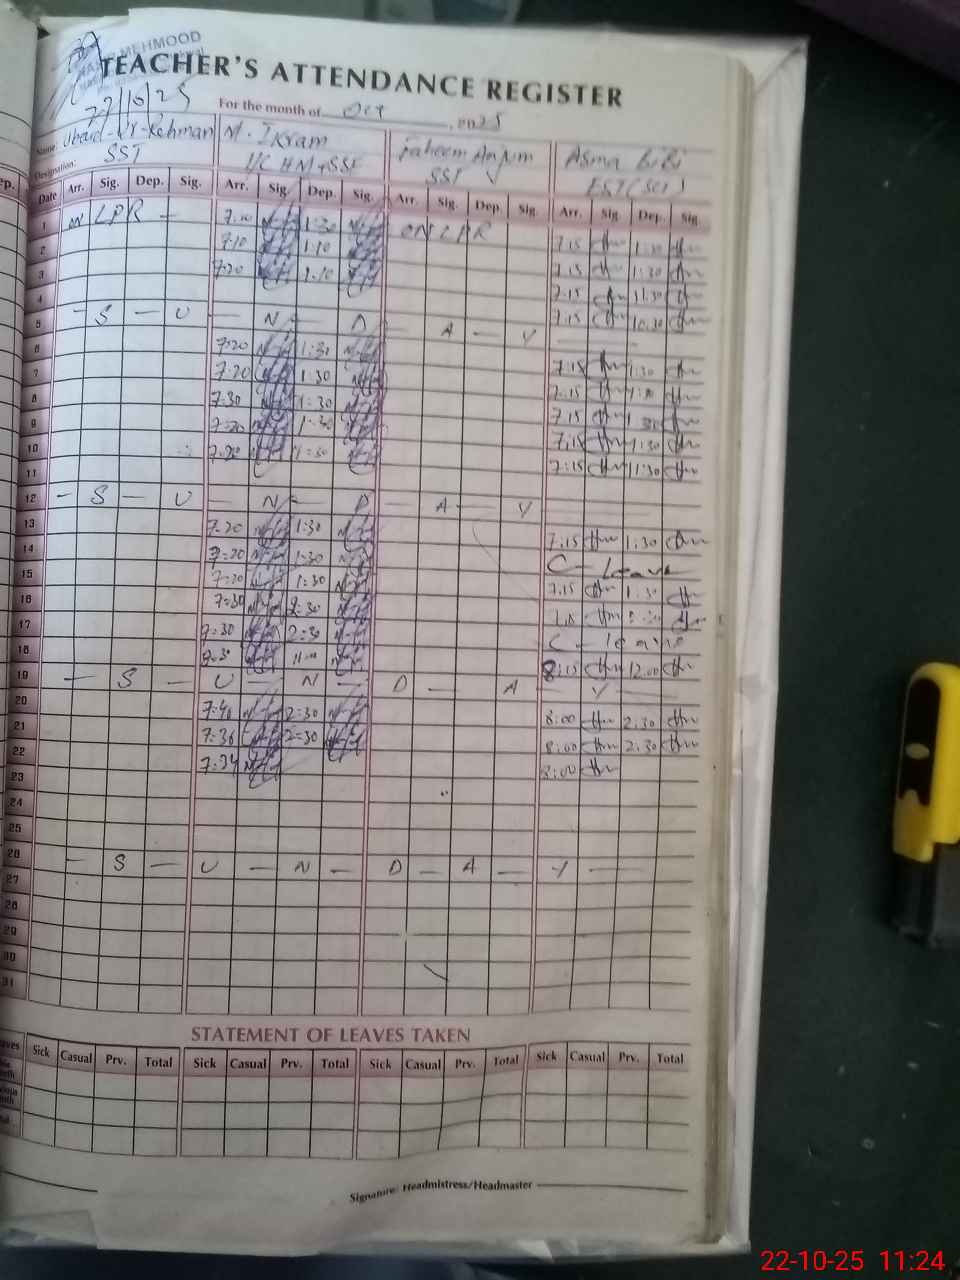 MEHMOOD
TEACHER'S ATTENDANCE REGISTER
22/10/25
For the month of Oct , 2025
Name: Ubaid-Ur-Rehman M. Ikram Faheem Anjum Asma BiBi
Designation: SST I/C HM + SSE SST EST (Sci)
Date Arr. Sig. Dep. Sig. Arr. Sig. Dep. Sig. Arr. Sig. Dep. Sig. Arr. Sig. Dep. Sig.
1 ON LPR — 7.10 1:30 ON LPR 7.15 1:30
2 7.10 1.10 7.15 1:30
3 7:20 1.10 7.15 11.30
4 7.15 10.30
5 — S — U — N — D — A — Y
6 7:20 1:30 7.15 1:30
7 7:20 1:30 7.15
8 7.30 1:30 7.15
9 7:20 1:30 7.15 1:30
10 7:20 1:30 7:15 1:30
11
12 — S — U — N — D — A — Y
13 7.20 1:30 7.15 1:30
14 7:20 1:30 C - Leave
15 7:20 1:30 7.15 1:30
16 7:30 2:30
17 7:30 2:30 C - leave
18 8:15 12.00
19 — S — U — N — D — A — Y
20 7:40 2:30 8:00 2.30
21 7:36 2:30 8:00 2.30
22 7:34 8:00
23
24
25
26 — S — U — N — D — A — Y —
27
28
29
30
31
STATEMENT OF LEAVES TAKEN
Sick Casual Prv. Total Sick Casual Prv. Total Sick Casual Prv. Total Sick Casual Prv. Total
Signature: Headmistress/Headmaster
22-10-25 11:24